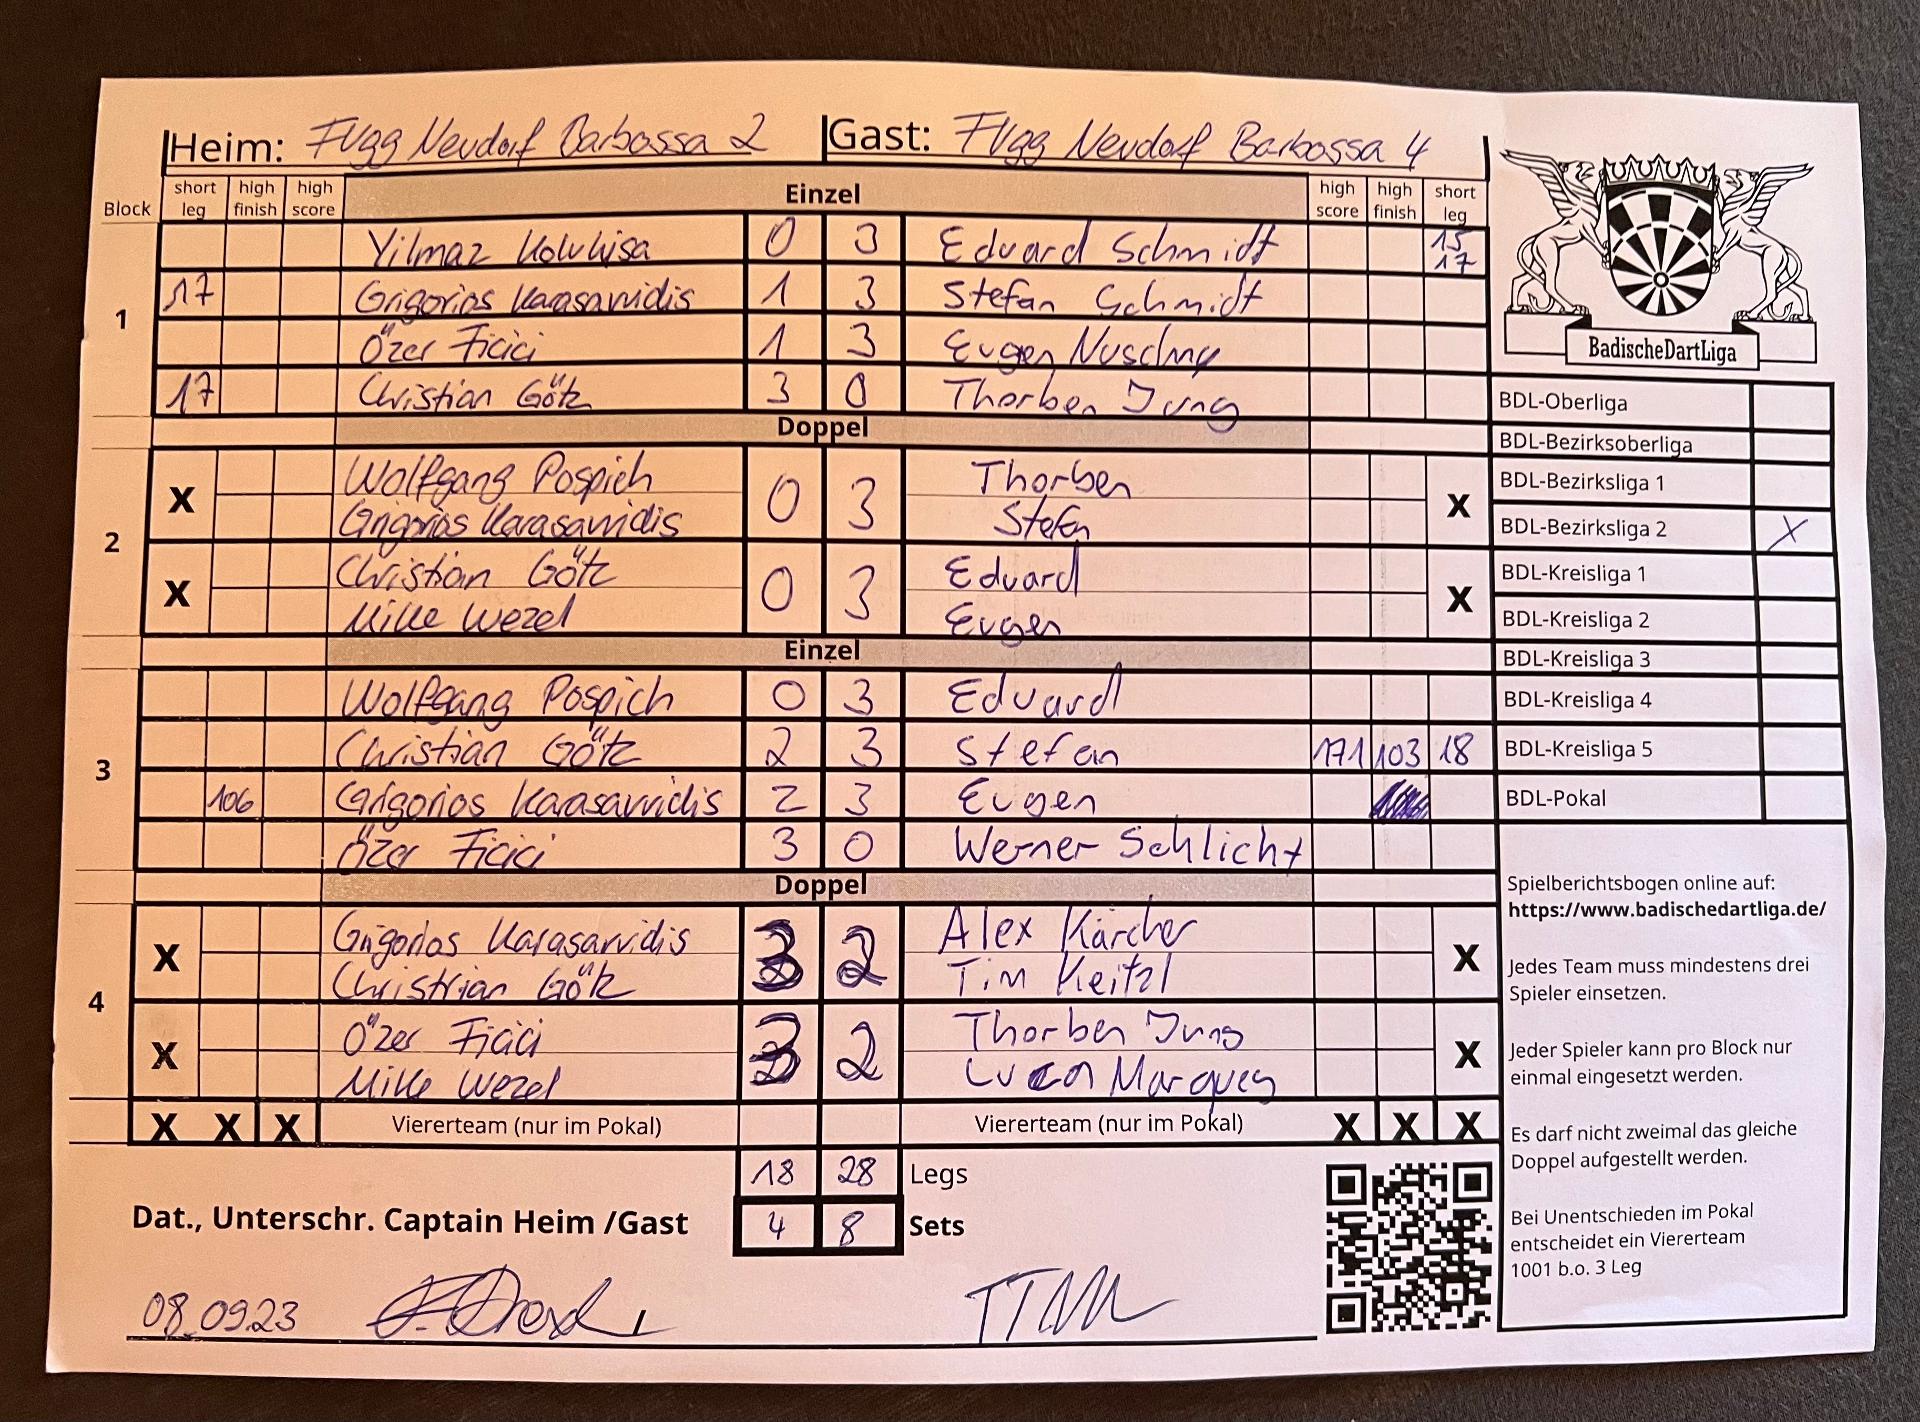 Heim: FVgg Neudorf Barbossa 2 Gast: FVgg Neudorf Barbossa 4
Block short leg high finish high score Einzel high score high finish short leg
1
Yilmaz Kolukisa 0 3 Eduard Schmidt 15 17
17 Grigorios Karasavvidis 1 3 Stefan Schmidt
Özer Ficici 1 3 Eugen Nuschny
17 Christian Götz 3 0 Thorben Jung
Doppel
2
X Wolfgang Pospich 0 3 Thorben X
Grigorios Karasavvidis Stefan
X Christian Götz 0 3 Eduard X
Mike Wezel Eugen
Einzel
3
Wolfgang Pospich 0 3 Eduard
Christian Götz 2 3 Stefan 171 103 18
106 Grigorios Karasavvidis 2 3 Eugen
Özer Ficici 3 0 Werner Schlicht
Doppel
4
X Grigorios Karasavvidis 3 2 Alex Kärcher X
Christrian Götz Tim Keitzl
X Özer Ficici 3 2 Thorben Jung X
Mike Wezel Luca Marques
X X X Viererteam (nur im Pokal) Viererteam (nur im Pokal) X X X
18 28 Legs
Dat., Unterschr. Captain Heim /Gast 4 8 Sets
08.09.23
BadischeDartLiga
BDL-Oberliga
BDL-Bezirksoberliga
BDL-Bezirksliga 1
BDL-Bezirksliga 2 X
BDL-Kreisliga 1
BDL-Kreisliga 2
BDL-Kreisliga 3
BDL-Kreisliga 4
BDL-Kreisliga 5
BDL-Pokal
Spielberichtsbogen online auf:
https://www.badischedartliga.de/
Jedes Team muss mindestens drei
Spieler einsetzen.
Jeder Spieler kann pro Block nur
einmal eingesetzt werden.
Es darf nicht zweimal das gleiche
Doppel aufgestellt werden.
Bei Unentschieden im Pokal
entscheidet ein Viererteam
1001 b.o. 3 Leg